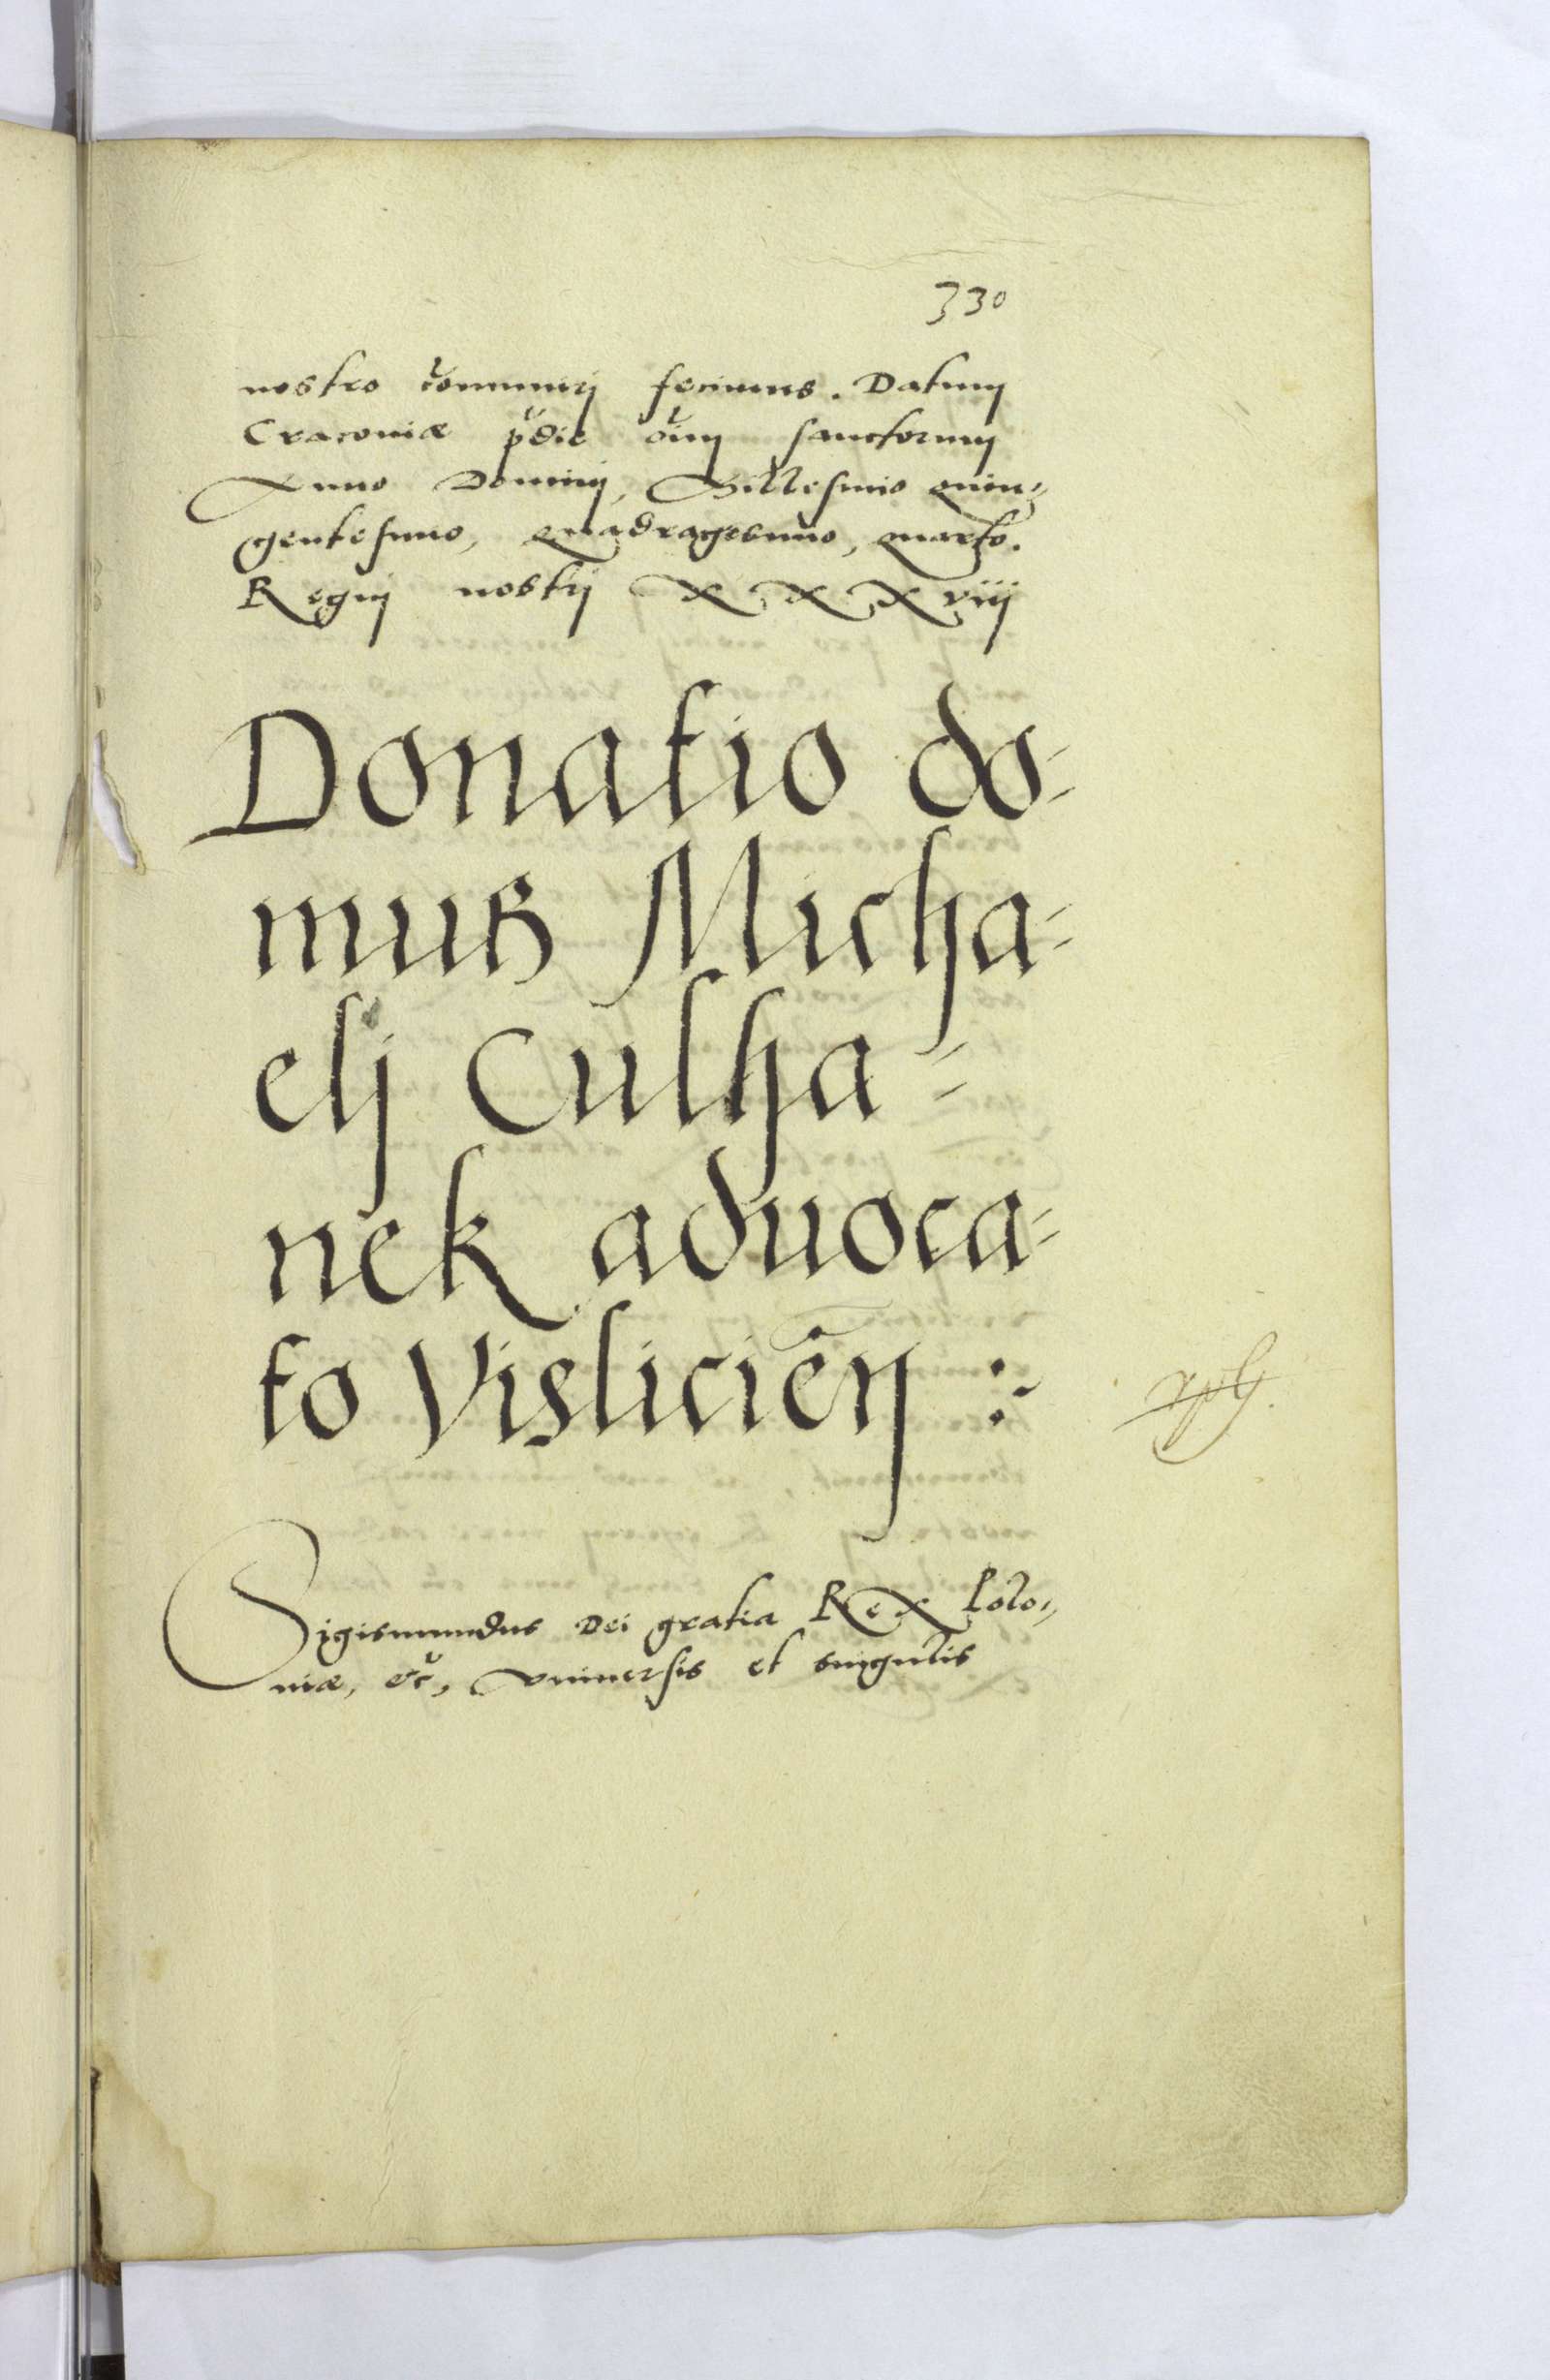 330
nostro c̆omunirj fecimus. Datum
Cracoviæ p̆die ŏim sanctorum
Anno Dominj, Millesimo quin=
gentesimo, quadragesimo, quarto.
Regnj nostrj XXXviij
Donatio do=
mus Micha=
elj Culha=
nek aduoca=
to Vislicień :~
Sigismundus Dei gratia Rex Polo=
niæ, &c̆, Vniuersis et singulis